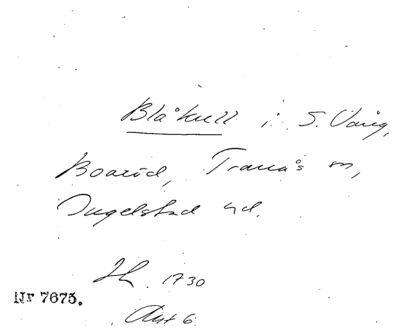 Blåkull i S. Vång,
Boaröd, Tranås sn,
Ingelstad hd.
Jh. 1730
Nr 7675.
Akt 6